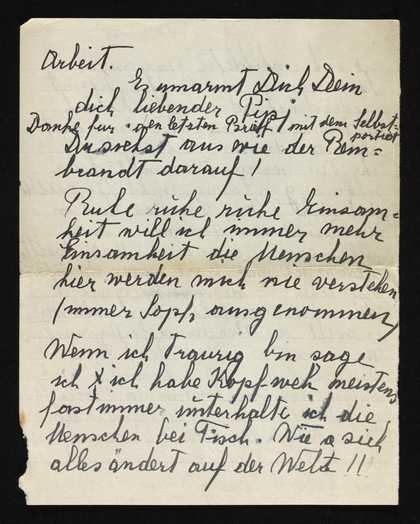 Arbeit.
Es umarmt Dich Dein
dich liebender Pipi
Danke für den letzten Brief! mit dem Selbst-
porträt
Du siehst aus wie der Rem-
brandt darauf!
Ruhe ruhe ruhe Einsam-
keit will ich immer mehr
Einsamkeit die Menschen
hier werden mich nie verstehen
(immer Soph ausgenommen)
Wenn ich Traurig bin sage
ich ich habe Kopfweh meistens
fast immer unterhalte ich die
Menschen bei Tisch. Wie sich
alles ändert auf der Welt!!